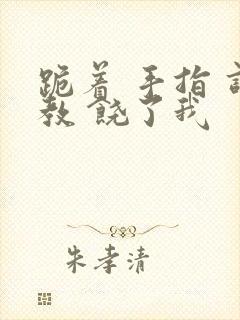 跪着 手指
教 饶了我
朱孝清